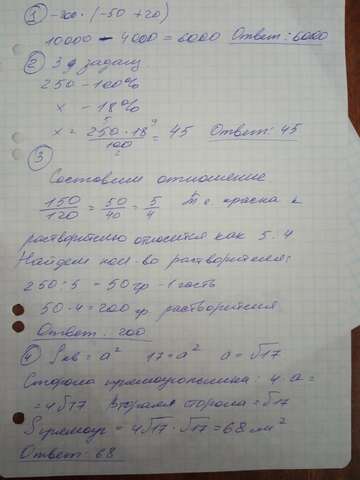 ① -200 · (-50 + 20)
10000 - 4000 = 6000 Ответ: 6000
② 3я задачи
250 - 100%
x - 18%
x = 250 · 18 / 100 = 45 Ответ: 45
③
Составим отношение
150/120 = 50/40 = 5/4 т е краска к
растворителю относится как 5:4
Найдем кол-во растворителя:
250 : 5 = 50 гр - 1 часть
50 · 4 = 200 гр растворителя
Ответ: 200
④ Sкв = a² 17 = a² a = √17
Сторона прямоугольника: 4 · a =
= 4√17 Вторая сторона = √17
Sпрямоуг = 4√17 · √17 = 68 см²
Ответ: 68